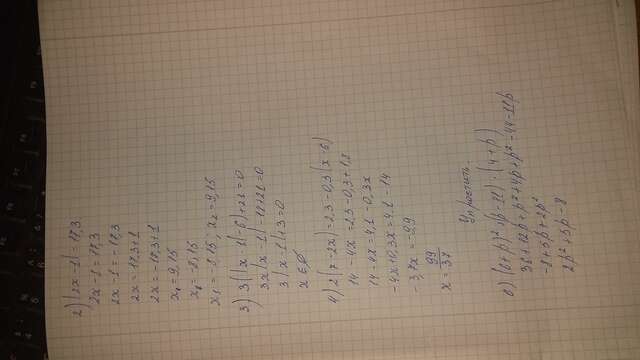 2) |2x-1| = 17,3
2x-1 = 17,3
2x-1 = -17,3
2x = 17,3+1
2x = -17,3+1
x₁ = 9,15
x₂ = -8,15
x₁ = -8,15; x₂ = 9,15
3) 3(|x-1|-6)+21=0
3|x-1|-18+21=0
3|x-1|+3=0
x ∈ ∅
4) 2(7-2x)=2,3-0,3(x-6)
14-4x=2,3-0,3+1,8
14-4x=4,1-0,3x
-4x+0,3x=4,1-14
-3,7x = -9,9
x = 99/37
Упростить.
в) (6+p)²+(p-11)·(4+p)
36+12p+p²+4p+p²-44-11p
-8+5p+2p²
2p²+5p-8